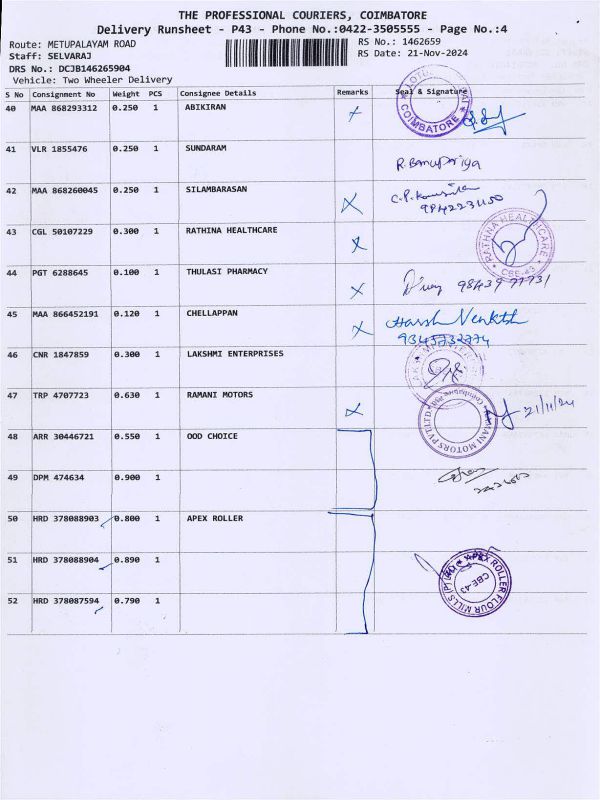 THE PROFESSIONAL COURIERS, COIMBATORE
Delivery Runsheet - P43 - Phone No.:0422-3505555 - Page No.:4
Route: METUPALAYAM ROAD RS No.: 1462659
Staff: SELVARAJ RS Date: 21-Nov-2024
DRS No.: DCJB146265904
Vehicle: Two Wheeler Delivery
S No Consignment No Weight PCS Consignee Details Remarks Seal & Signature
40 MAA 868293312 0.250 1 ABIKIRAN
COIMBATORE
41 VLR 1855476 0.250 1 SUNDARAM
42 MAA 868260045 0.250 1 SILAMBARASAN
43 CGL 50107229 0.300 1 RATHINA HEALTHCARE
RATHNA HEALTHCARE CBE-43
44 PGT 6288645 0.100 1 THULASI PHARMACY
45 MAA 866452191 0.120 1 CHELLAPPAN Harsh Venkth
9345732774
46 CNR 1847859 0.300 1 LAKSHMI ENTERPRISES
47 TRP 4707723 0.630 1 RAMANI MOTORS 21/11/24
RAMANI MOTORS PVT LTD
48 ARR 30446721 0.550 1 OOD CHOICE
49 DPM 474634 0.900 1
50 HRD 378088903 0.800 1 APEX ROLLER
51 HRD 378088904 0.890 1
APEX ROLLER FLOUR MILLS (P) LTD CBE-43
52 HRD 378087594 0.790 1